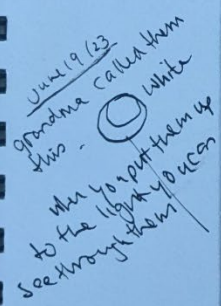 June 19/23
grandma called them
this - white
when you put them up
to the light you can
see through them